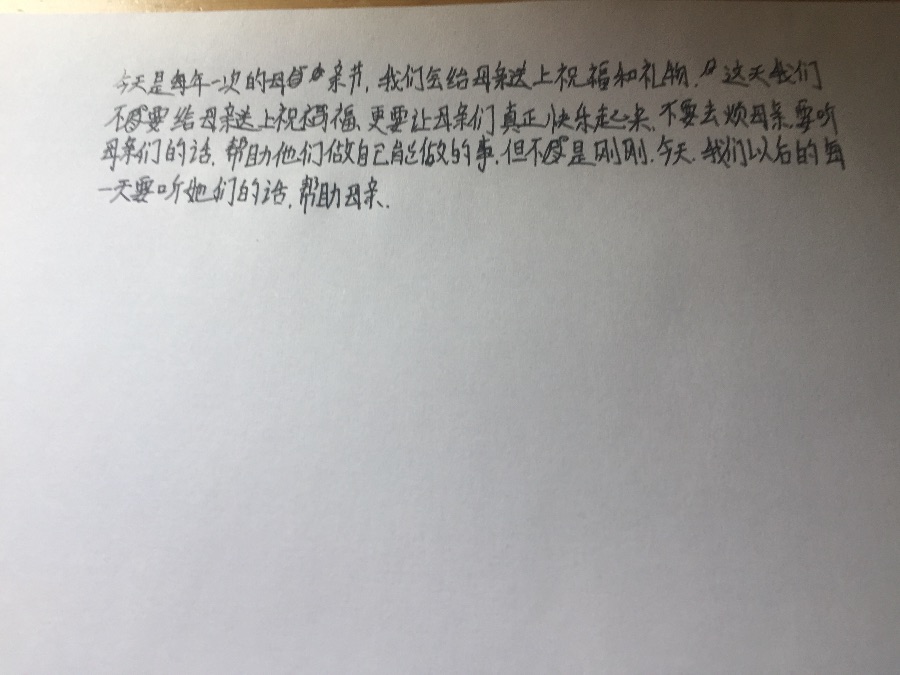 今天是每年一次的母亲节,我们会给母亲送上祝福和礼物.这天我们
不要给母亲送上祝福、更要让母亲们真正快乐起来、不要去烦母亲、要听
母亲们的话、帮助他们做自己能做的事、但不是刚刚、今天、我们以后的每
一天要听她们的话、帮助母亲.